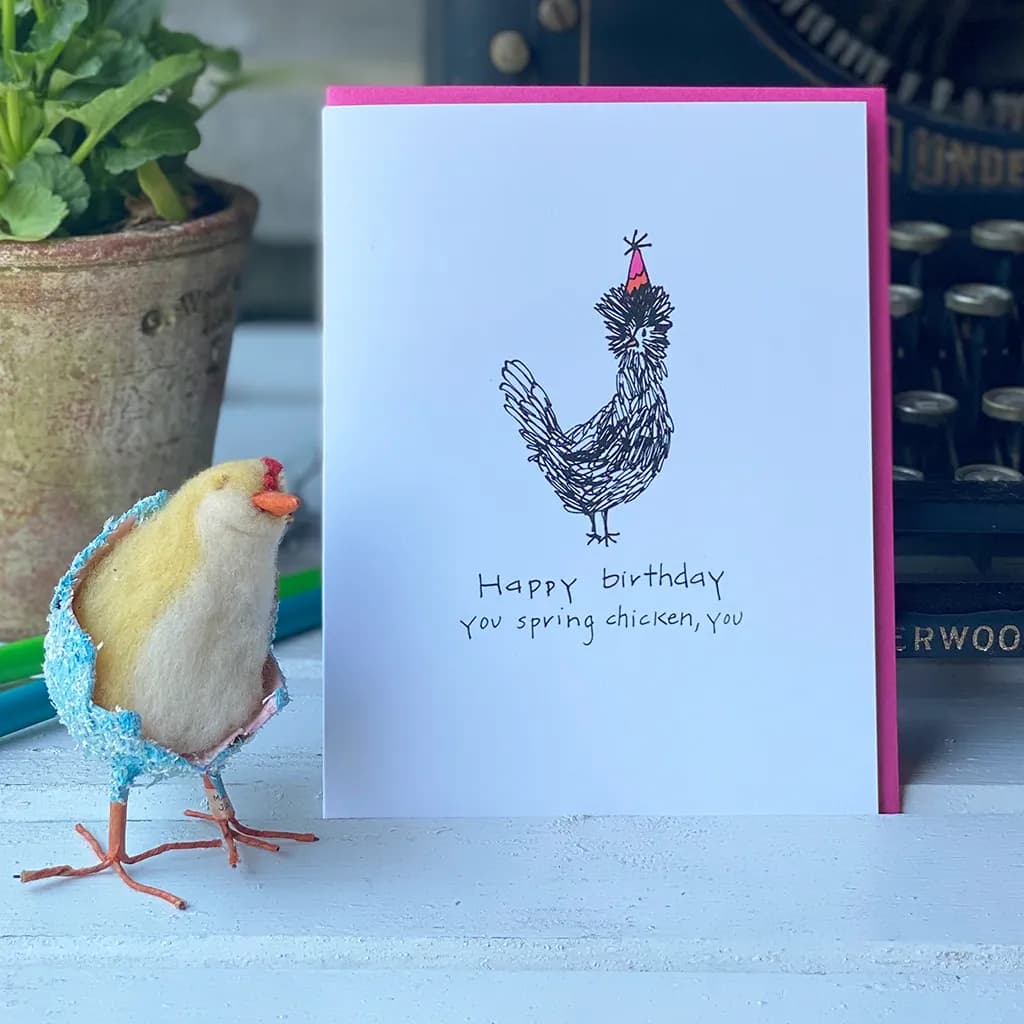 Happy birthday
you spring chicken, you
UNDE
ERWOO